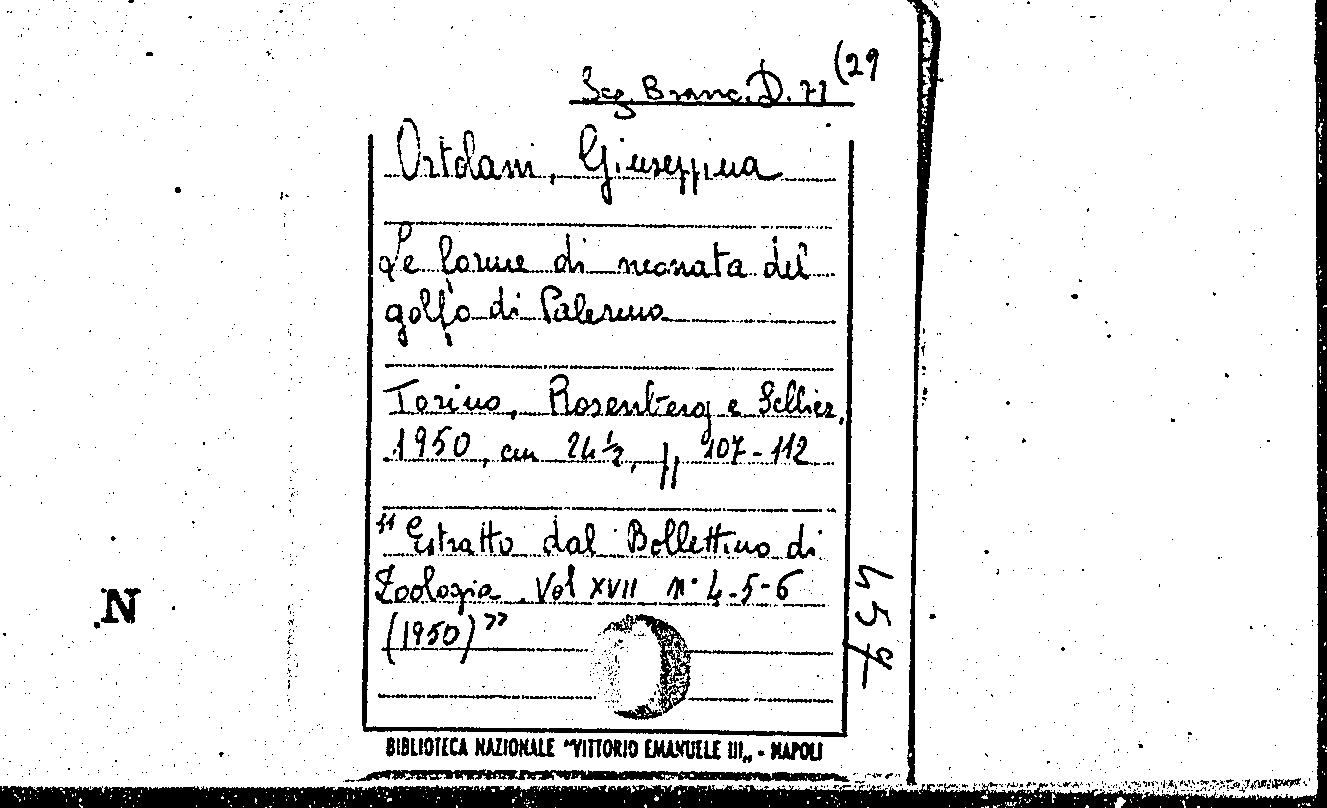 Seg. Branc. D. 71 (29
Ortolani, Giuseppina
Le forme di neonata del
golfo di Palermo
Torino, Rosenberg e Sellier,
1950, cm 24½, pp 107-112
"Estratto dal Bollettino di
Zoologia. Vol XVII n° 4-5-6
(1950)"
459
N
BIBLIOTECA NAZIONALE "VITTORIO EMANUELE III„ - NAPOLI